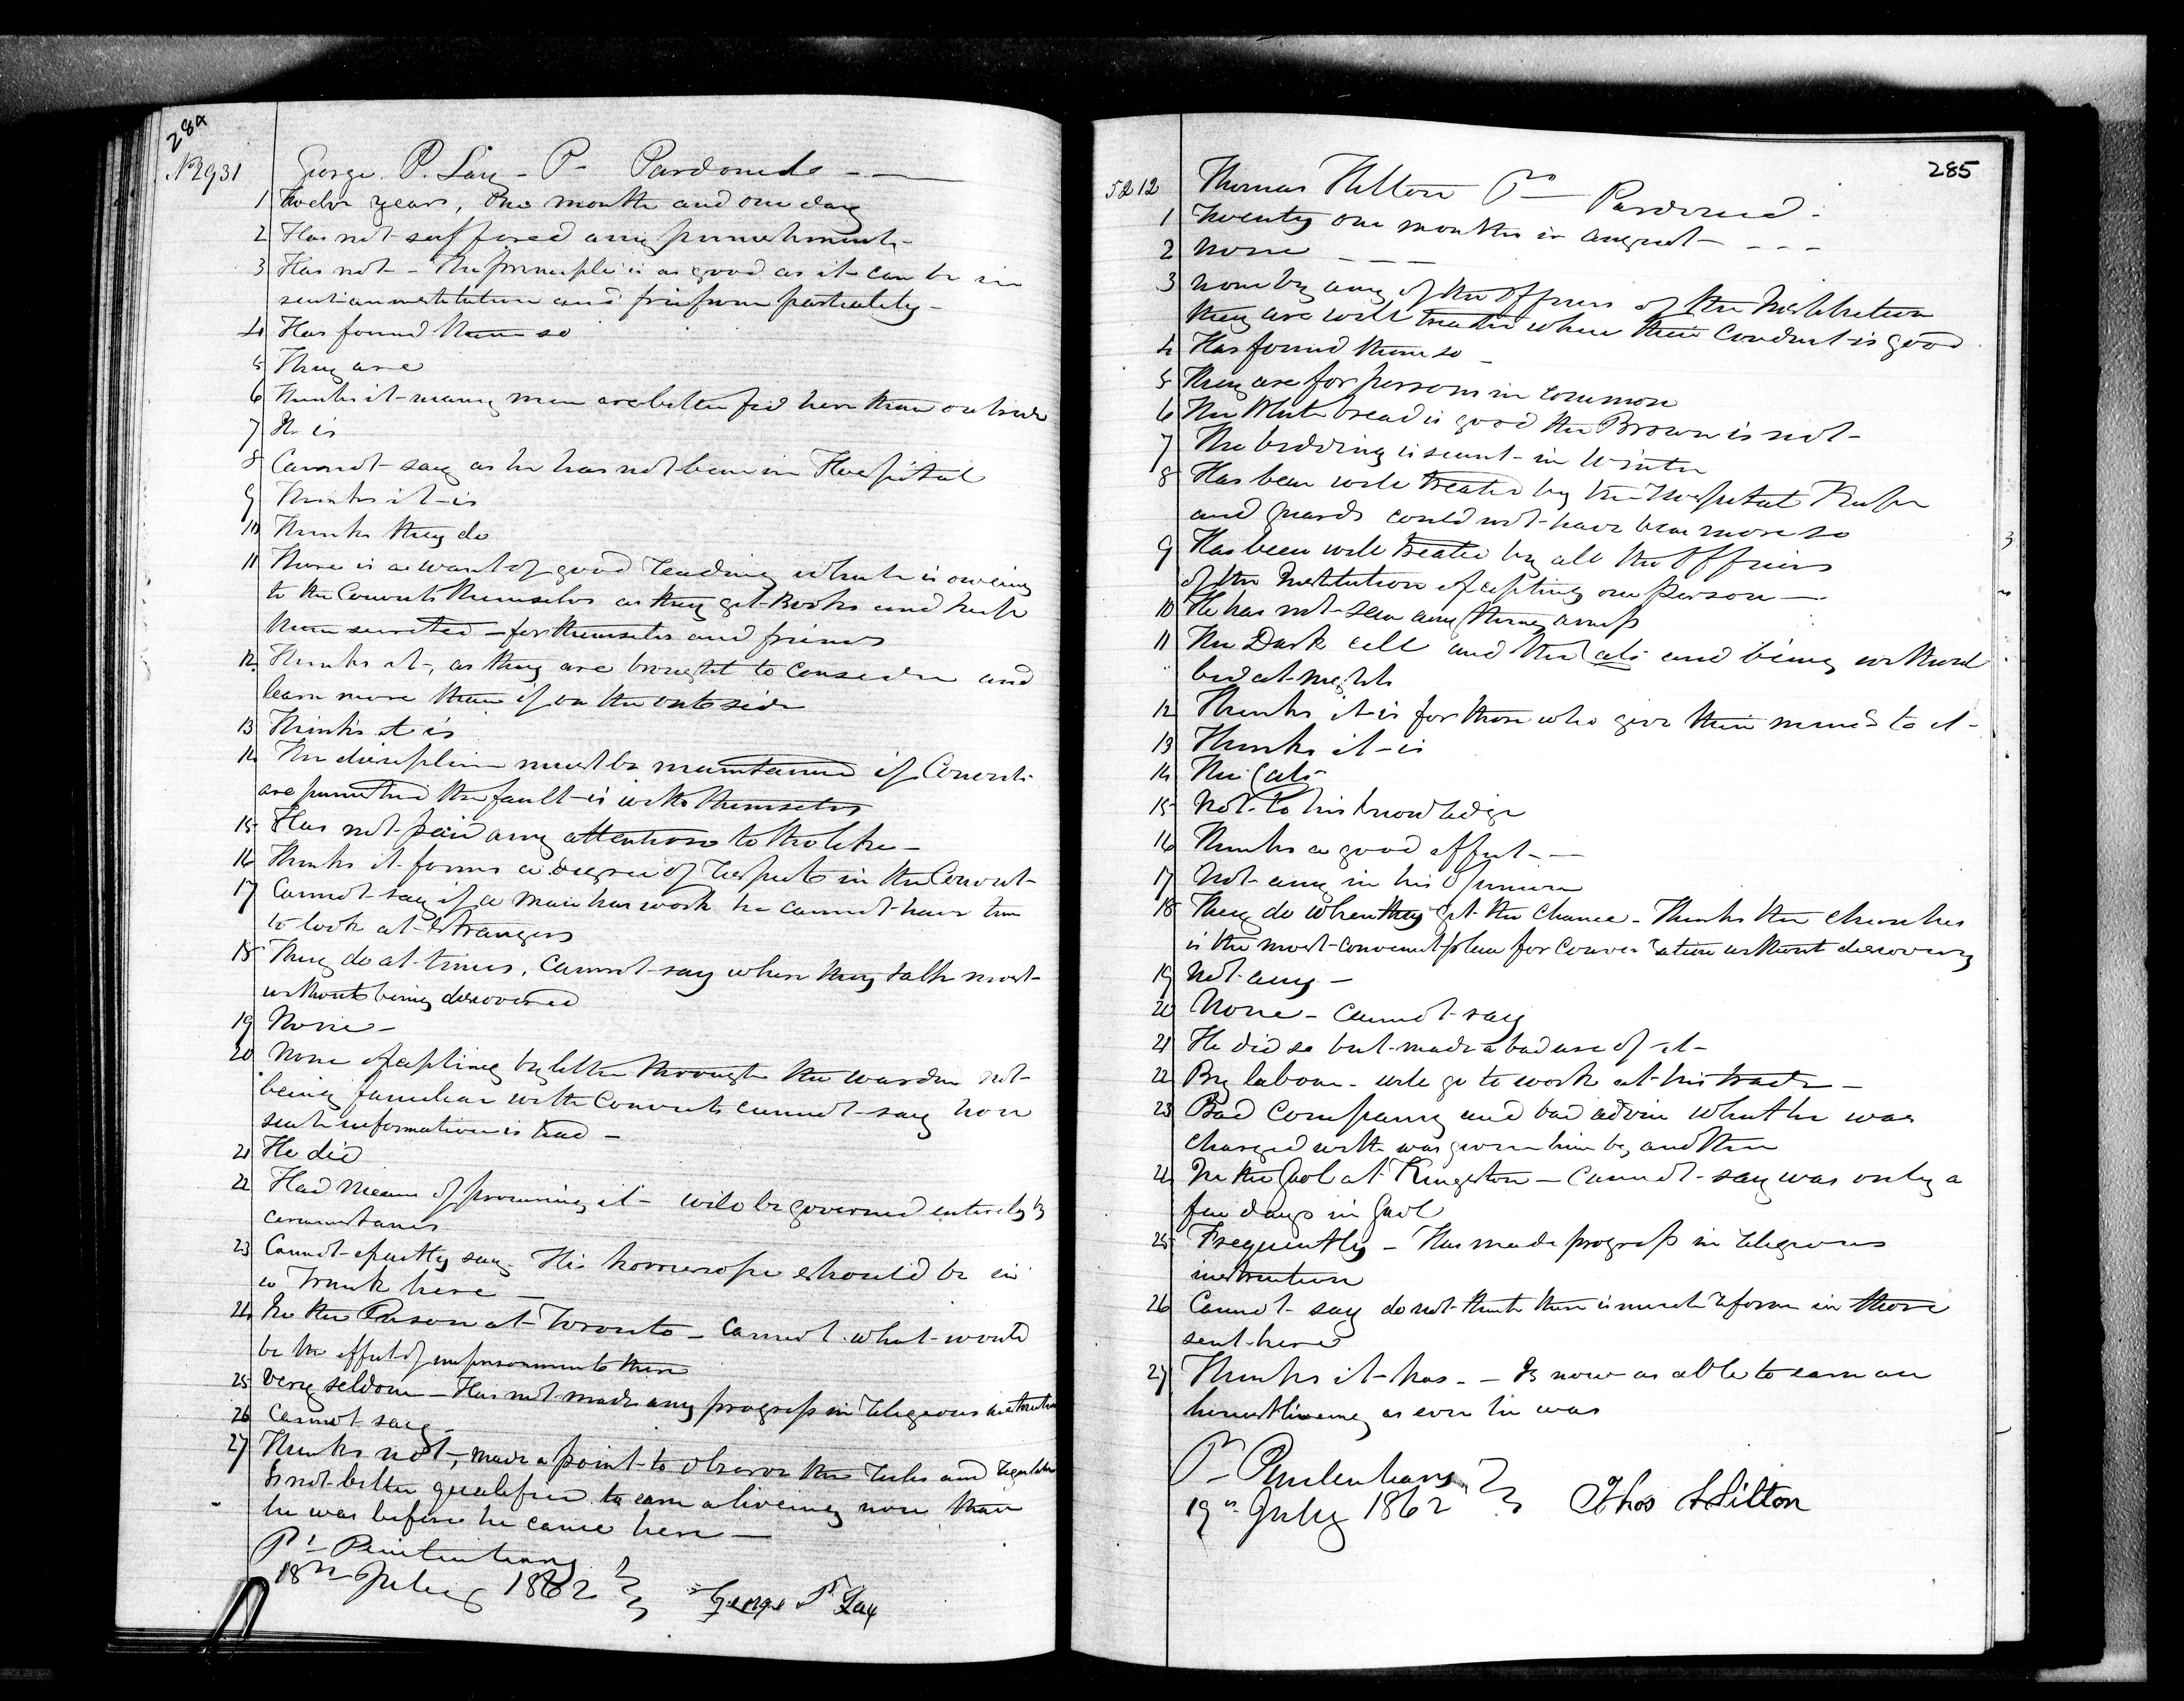 284
No 2931 George P. Lay - P- Pardoned - —
1 Twelve years, One month and one day
2 Has not suffered any punishment -
3 Has not - The principle is as good as it can be in
such an institution and free from partiality -
4 Has found them so
5 They are
6 Thinks it - many men are better fed here than outside
7 It is
8 Cannot say as he has not been in Hospital
9 Thinks it is
10 Thinks they do
11 There is a want of good reading which is owing
to the Convicts themselves as they get Books and keep
them secreted - for themselves and friends
12 Thinks it, as they are brought to consider and
learn more than if on the outside
13 Thinks it is
14 The discipline must be maintained if Convicts
are punished the fault is with themselves
15 Has not paid any attention to the like -
16 Thinks it forms a degree of respect in the Convict -
17 Cannot say if a man has work he cannot have time
to look at strangers
18 They do at times, Cannot say when they talk most
without being discovered
19 None -
20 None excepting by letter through the warden not
being familiar with Convicts cannot say how
such information is had -
21 He did
22 Had means of procuring it - will be governed entirely by
circumstances
23 Cannot exactly say. His horoscope should be in
a Trunk here -
24 In the Prison at Toronto - Cannot what would
be the effect of imprisonment there
25 Very seldom - Has not made any progress in religious instruction
26 Cannot say -
27 Thinks not, made a point to observe the rules and regulations
Is not better qualified to earn a liveing now than
he was before he came here -
Pl Penitentiary
18th July 1862 George P Lay
285
5212 Thomas Hilton Pro Pardoned -
1 Twenty one months in august - - - -
2 None - - -
3 None by any of the Officers of the Institution
they are well treated when their Conduct is good
4 Has found them so -
5 They are for persons in common
6 The White bread is good the Brown is not -
7 The bedding is scant in Winter
8 Has been well treated by the Hospital Keeper
and Guards could not have been more so
9 Has been well treated by all the Officers
of the Institution excepting one person -
10 He has not seen any thing amiss
11 The Dark cell and the Cats and being without
bed at night
12 Thinks it is for those who give their minds to it -
13 Thinks it is
14 The Cats
15 Not to his knowledge
16 Thinks a good effect - -
17 Not any in his Opinion
18 They do when they get the chance - Thinks the churches
is the most convenient place for conversation without discovery
19 Not any -
20 None - Cannot say
21 He did so but made a bad use of it -
22 By labour - will go to work at his trade -
23 Bad Company and bad advice what he was
charged with was given him by another
24 In the Gaol at Kingston - Cannot say was only a
few days in Gaol
25 Frequently - Has made progress in religious
instruction
26 Cannot say do not think there is much reform in those
sent here
27 Thinks it has. - Is now as able to earn an
honest liveing as ever he was
Pl Penitentiary
19th July 1862 Thos Hilton